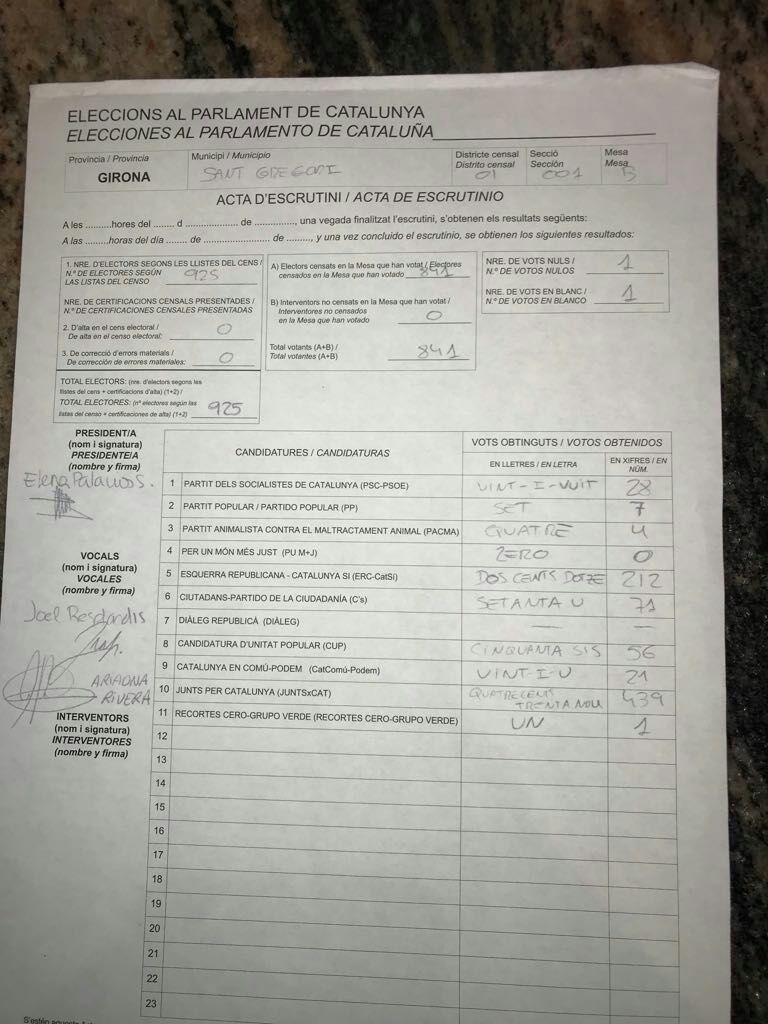 ELECCIONS AL PARLAMENT DE CATALUNYA
ELECCIONES AL PARLAMENTO DE CATALUÑA
Província / Provincia
GIRONA
Municipi / Municipio
SANT GREGORI
Districte censal
Distrito censal
01
Secció
Sección
001
Mesa
Mesa
B
ACTA D'ESCRUTINI / ACTA DE ESCRUTINIO
A les .........hores del ....... d ................... de ............., una vegada finalitzat l'escrutini, s'obtenen els resultats següents:
A las .........horas del día ....... de ....................... de ........, y una vez concluido el escrutinio, se obtienen los siguientes resultados:
1. NRE. D'ELECTORS SEGONS LES LLISTES DEL CENS /
N.º DE ELECTORES SEGÚN
LAS LISTAS DEL CENSO
925
NRE. DE CERTIFICACIONS CENSALS PRESENTADES /
N.º DE CERTIFICACIONES CENSALES PRESENTADAS
2. D'alta en el cens electoral /
De alta en el censo electoral:
0
3. De correcció d'errors materials /
De corrección de errores materiales:
0
TOTAL ELECTORS: (nre. d'electors segons les
llistes del cens + certificacions d'alta) (1+2) /
TOTAL ELECTORES: (nº electores según las
listas del censo + certificaciones de alta) (1+2)
925
A) Electors censats en la Mesa que han votat / Electores
censados en la Mesa que han votado
841
B) Interventors no censats en la Mesa que han votat /
Interventores no censados
en la Mesa que han votado
0
Total votants (A+B) /
Total votantes (A+B)
841
NRE. DE VOTS NULS /
N.º DE VOTOS NULOS
1
NRE. DE VOTS EN BLANC /
N.º DE VOTOS EN BLANCO
1
PRESIDENT/A
(nom i signatura)
PRESIDENTE/A
(nombre y firma)
Elena Palacios.
VOCALS
(nom i signatura)
VOCALES
(nombre y firma)
Joel
ARIADNA
RIVERA
INTERVENTORS
(nom i signatura)
INTERVENTORES
(nombre y firma)
CANDIDATURES / CANDIDATURAS
VOTS OBTINGUTS / VOTOS OBTENIDOS
EN LLETRES / EN LETRA
EN XIFRES / EN NÚM.
1 PARTIT DELS SOCIALISTES DE CATALUNYA (PSC-PSOE) VINT-I-VUIT 28
2 PARTIT POPULAR / PARTIDO POPULAR (PP) SET 7
3 PARTIT ANIMALISTA CONTRA EL MALTRACTAMENT ANIMAL (PACMA) QUATRE 4
4 PER UN MÓN MÉS JUST (PU M+J) ZERO 0
5 ESQUERRA REPUBLICANA - CATALUNYA SI (ERC-CatSí) DOS CENTS DOTZE 212
6 CIUTADANS-PARTIDO DE LA CIUDADANÍA (C's) SETANTA U 71
7 DIÀLEG REPUBLICÀ (DIÀLEG) — —
8 CANDIDATURA D'UNITAT POPULAR (CUP) CINQUANTA SIS 56
9 CATALUNYA EN COMÚ-PODEM (CatComú-Podem) VINT-I-U 21
10 JUNTS PER CATALUNYA (JUNTSxCAT) QUATRECENTS TRENTA NOU 439
11 RECORTES CERO-GRUPO VERDE (RECORTES CERO-GRUPO VERDE) UN 1
12
13
14
15
16
17
18
19
20
21
22
23